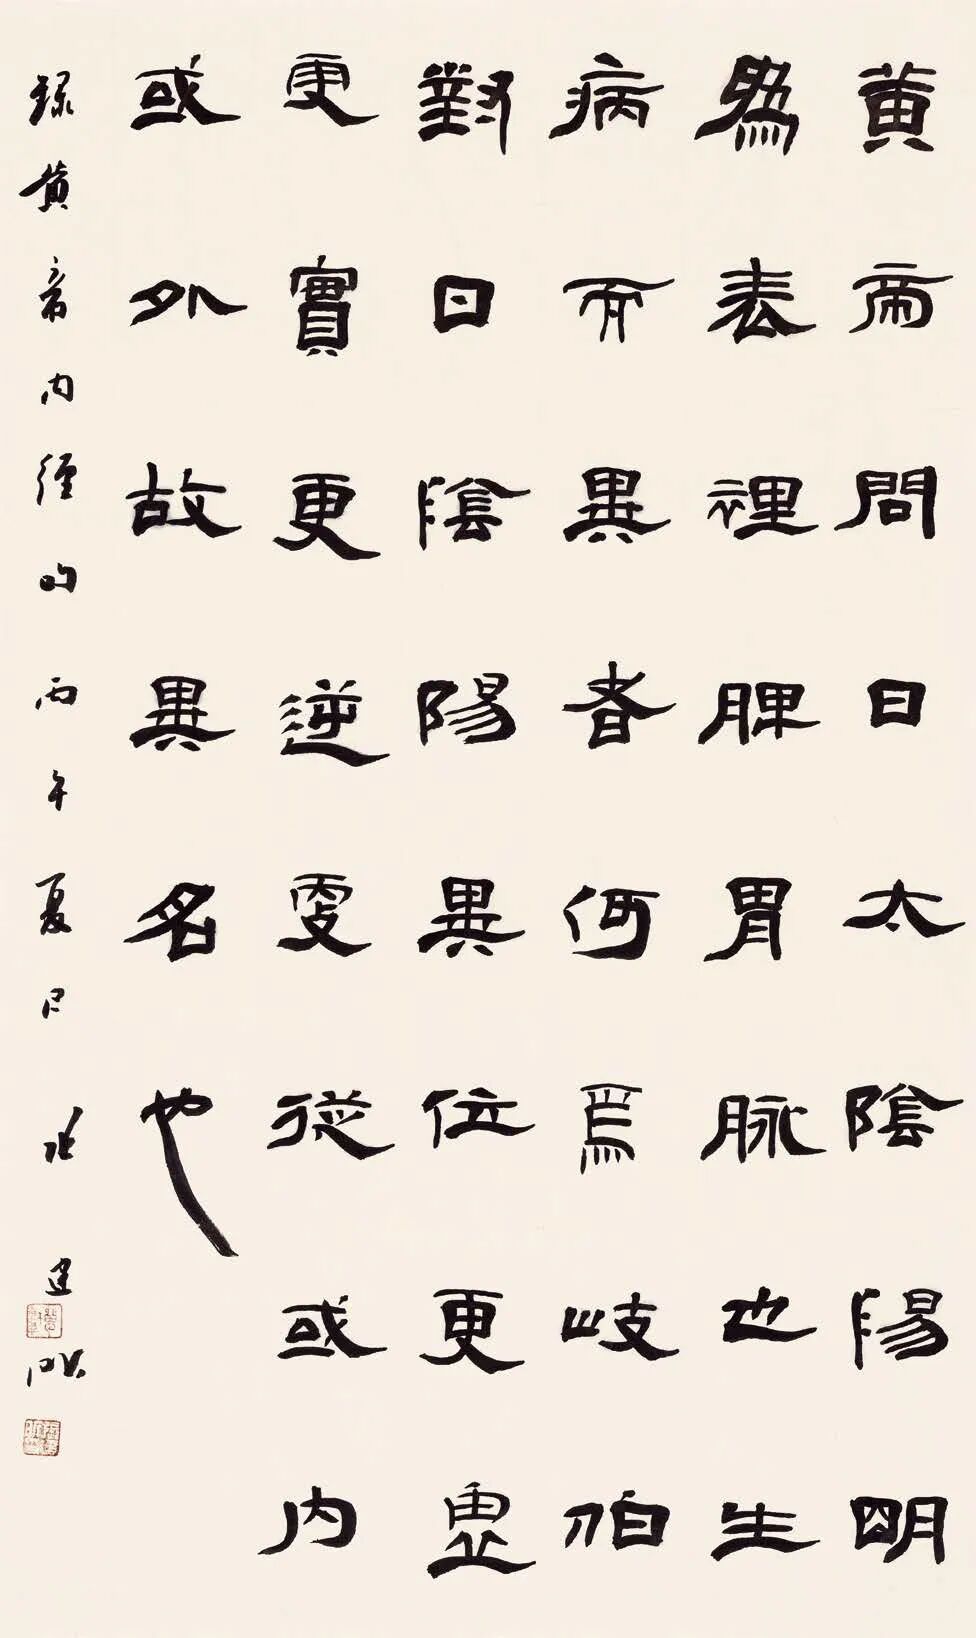 黄帝問曰太陰陽明
爲表裡脾胃脉也生
病而異者何焉岐伯
對曰陰陽異位更虛
更實更逆更從或内
或外故異名也
録黄帝内經句 丙午夏日 張建